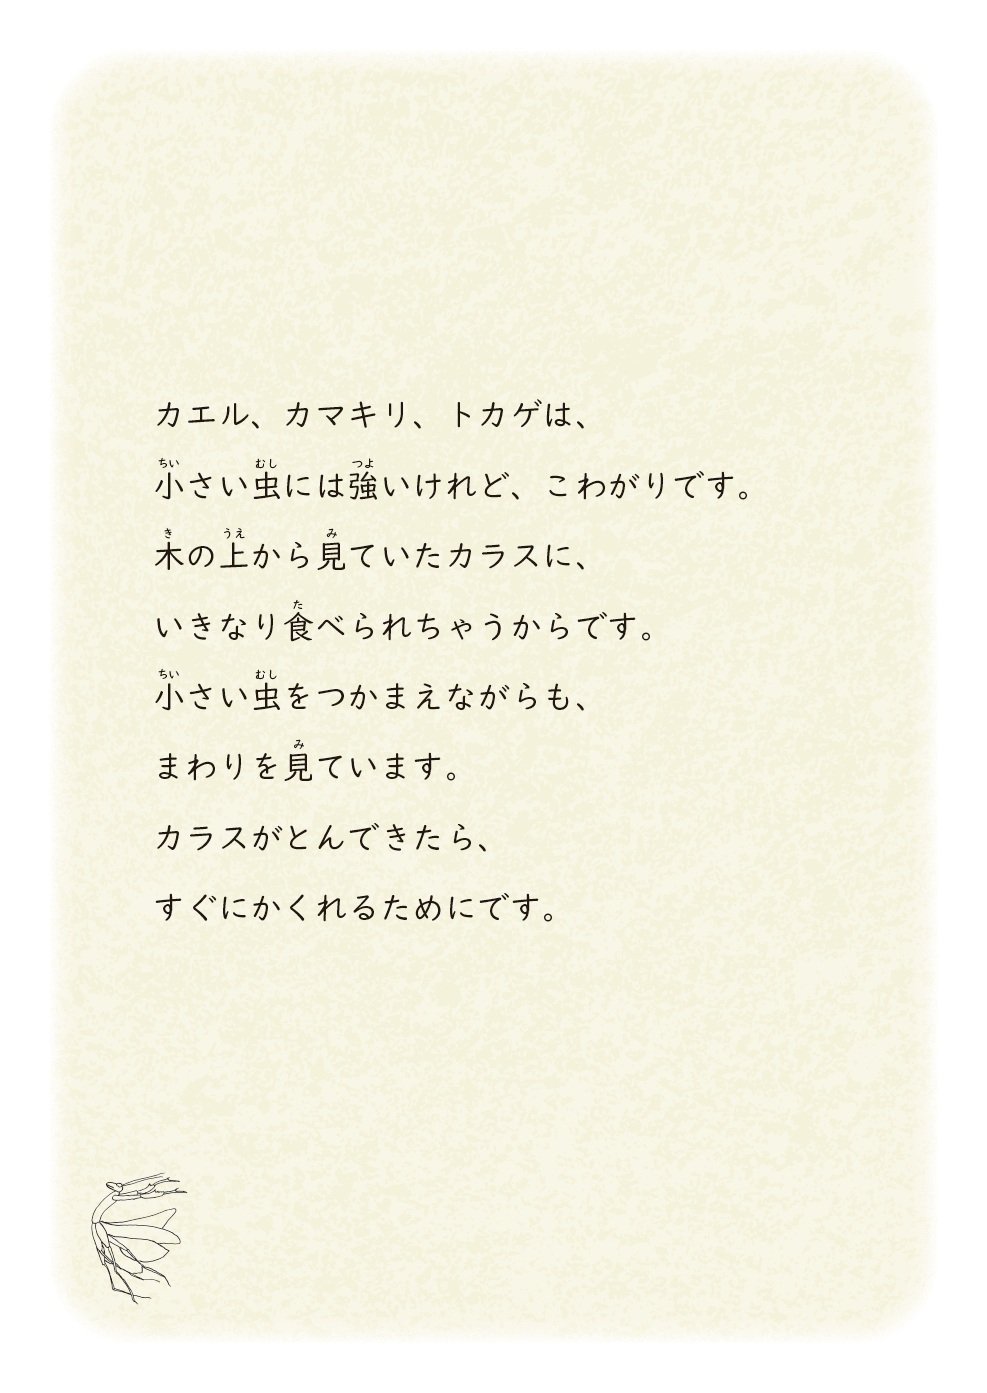 カエル、カマキリ、トカゲは、
小さい虫には強いけれど、こわがりです。
木の上から見ていたカラスに、
いきなり食べられちゃうからです。
小さい虫をつかまえながらも、
まわりを見ています。
カラスがとんできたら、
すぐにかくれるためにです。